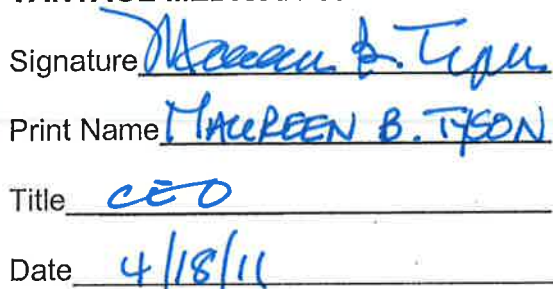 Signature Maureen B. Tyson
Print Name MAUREEN B. TYSON
Title CEO
Date 4/18/11